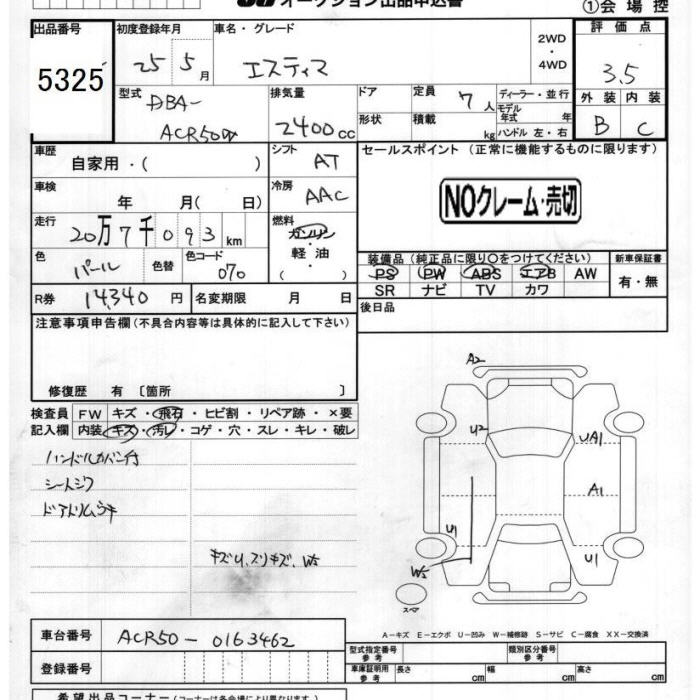 オークション出品申込書
①会場控
出品番号
5325
初度登録年月
25 5月
車名・グレード
エスティマ
2WD
・
4WD
評価点
3.5
外装 内装
B C
型式
DBA-
ACR50W
排気量
2400cc
ドア
形状
定員
7人
積載
kg
ディーラー・並行
モデル年式 年
ハンドル 左・右
車歴
自家用・( )
シフト
AT
車検
年 月( 日)
冷房
AAC
走行
20万7千093km
燃料
ガソリン
・
軽油
・
( )
色
パール
色替
色コード
070
R券 14,340円
名変期限 月 日
セールスポイント (正常に機能するものに限ります)
NOクレーム・売切
装備品(純正品に限り○をつけてください)
PS PW ABS エアB AW
SR ナビ TV カワ
新車保証書
有・無
後日品
注意事項申告欄(不具合内容等は具体的に記入して下さい)
修復歴 有〔箇所 〕
検査員記入欄
FW キズ・飛石・ヒビ割・リペア跡・×要
内装 キズ・汚レ・コゲ・穴・スレ・キレ・破レ
ハンドルカバー付
シートシワ
ドアトリムウキ
キズU、スリキズ、WS
A2
U2
UA1
A1
U1
U1
WS
スペア
A-キズ E-エクボ U-凹み W-補修跡 S-サビ C-腐食 XX-交換済
車台番号 ACR50-0163462
登録番号
型式指定番号
参考
類別区分番号
参考
車庫証明用
参考
長さ cm 幅 cm 高さ cm
希望出品コーナー(コーナーは各会場により異なります)